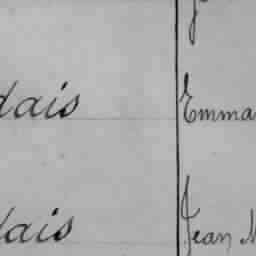 dais Emma
dais Jean M